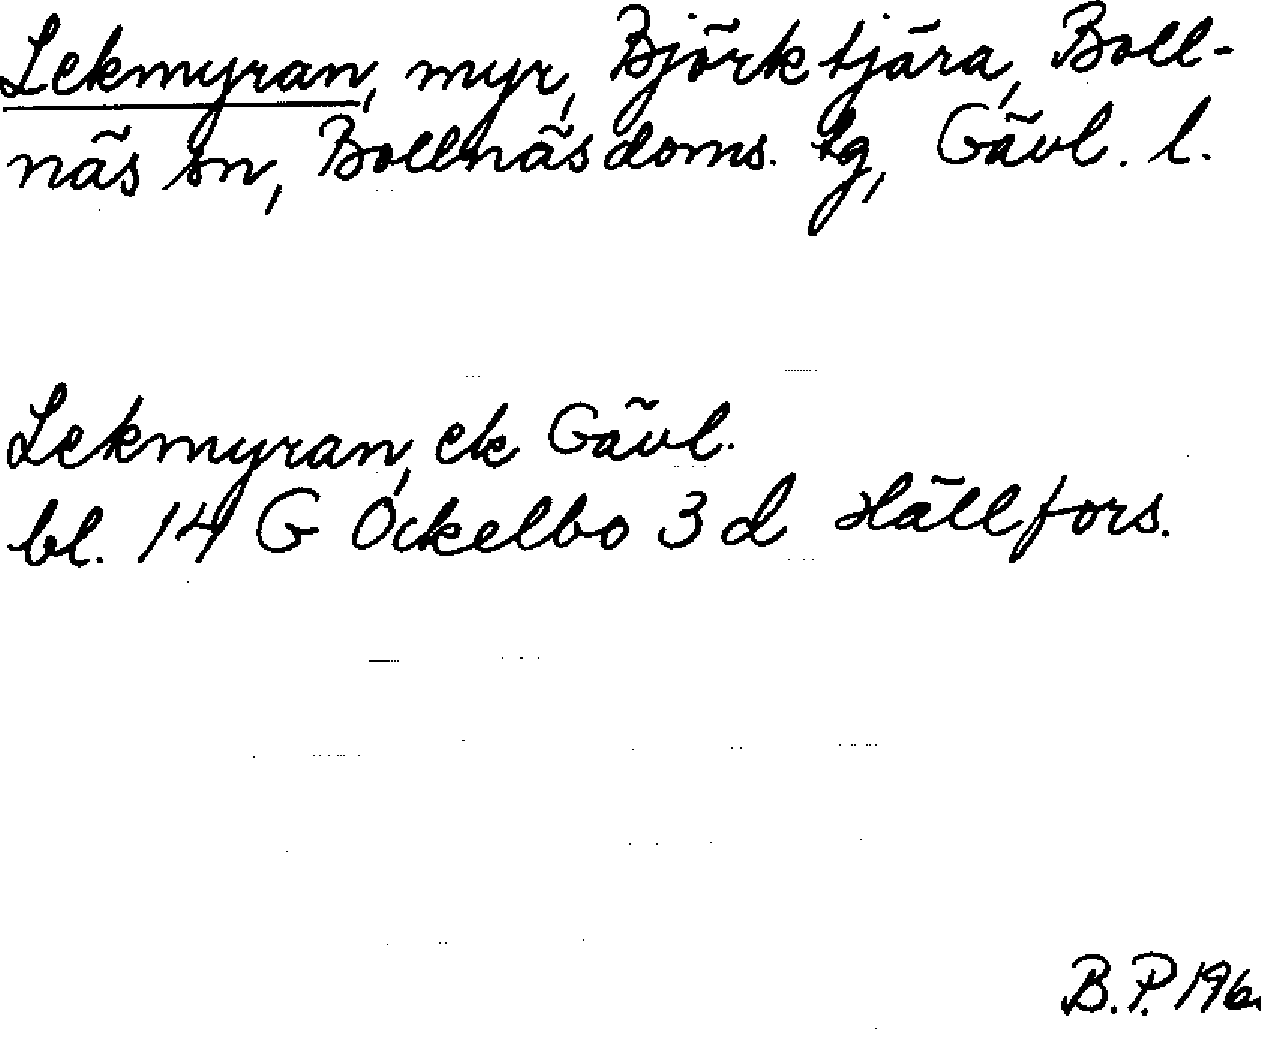 Lekmyran, myr, Björktjära, Boll-
näs sn, Bollnäs doms. tg, Gävl. l.
Lekmyran, ek Gävl.
bl. 14 G Ockelbo 3 d Hällfors.
B.P. 196